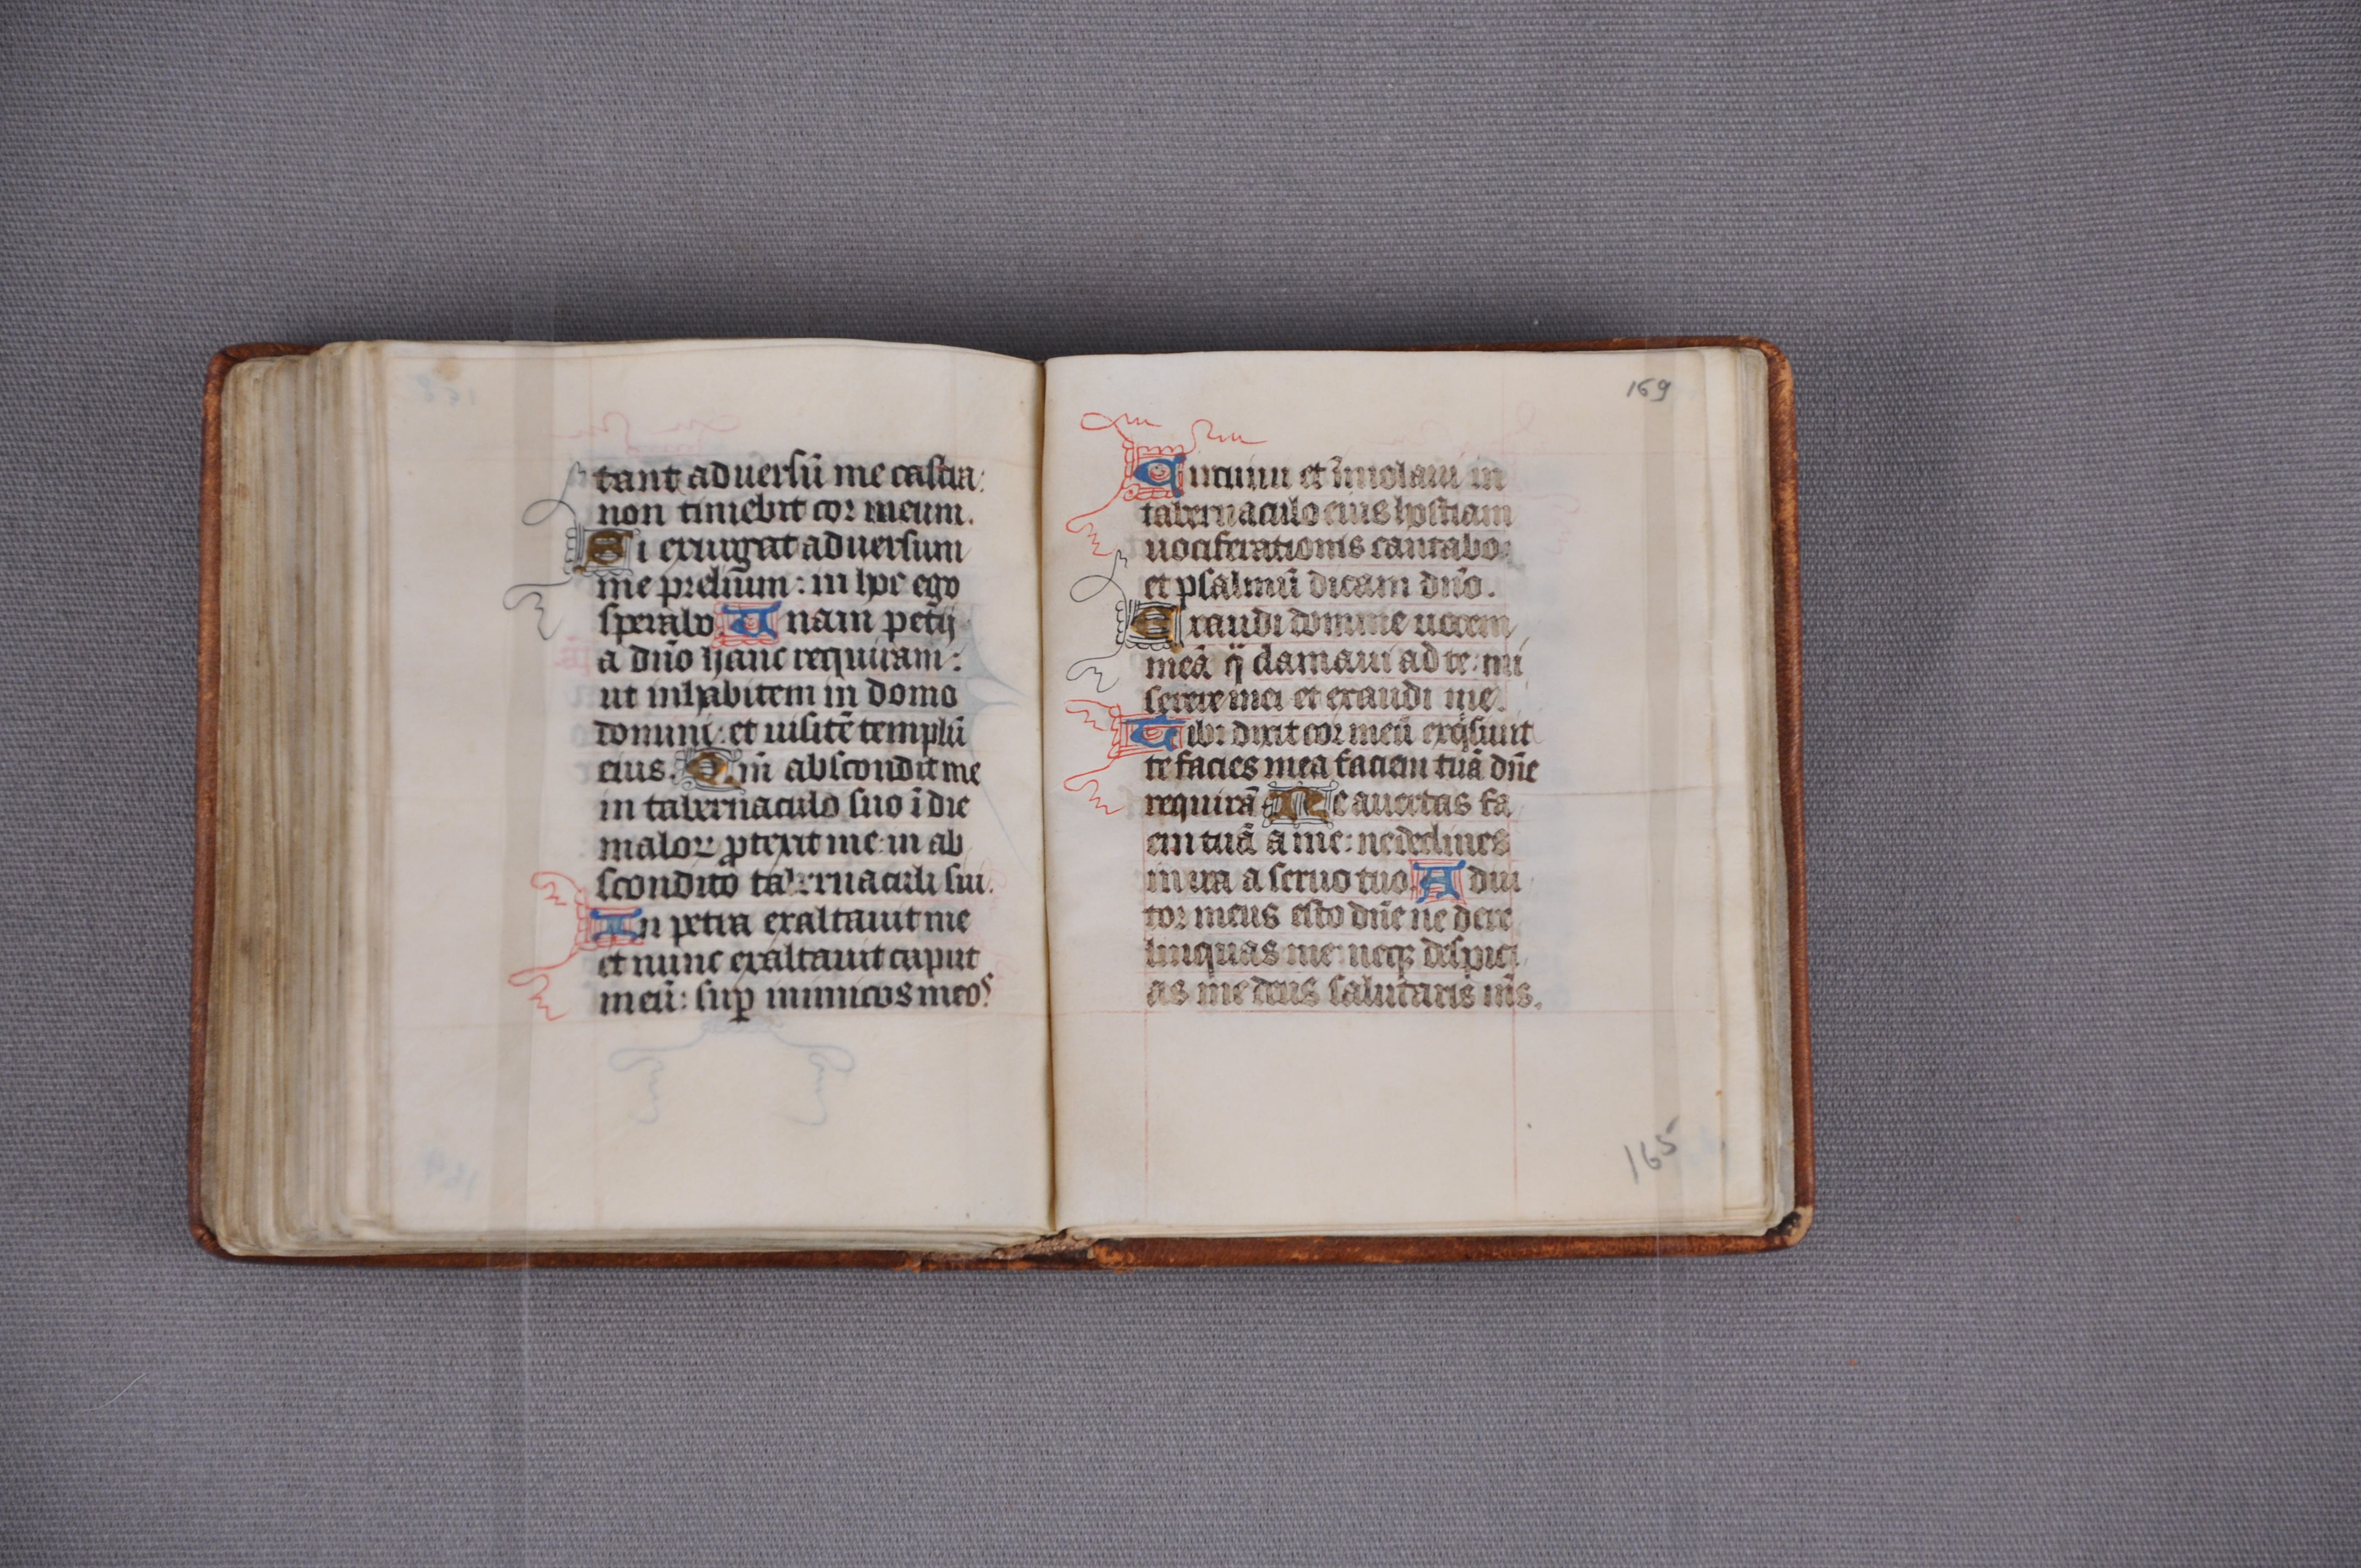 tant adversũ me castra:
non timebit cor meum.
Si exurgat adversum
me preliũum: in hoc ego
sperabo. Unam petij
a dño hanc requiram:
ut inhabitem in domo
domini: et uisitẽ templũ
eius. Qm̃ abscondit me
in tabernaculo suo ĩ die
maloꝝ ꝓtexit me: in ab
scondito tabernaculi sui.
In petra exaltauit me
et nunc exaltauit caput
meũ: suꝑ inimicos meos
169
Circuiui et ĩmolaui in
tabernaculo eius hostiam
uociferationis cantabo:
et psalmũ dicam dño.
Exaudi domine uocem
meã q̃ clamaui ad te: mi
serere mei et exaudi me.
Tibi dixit cor meũ exqͥsiuit
te facies mea faciem tuã dñe
requirã. Ne auertas fa
ciem tuã a me: ne declines
in ira a seruo tuo. Adiu
tor meus esto dñe ne dere
linquas me: neqꝫ despici
as me deus salutaris m̃s.
165